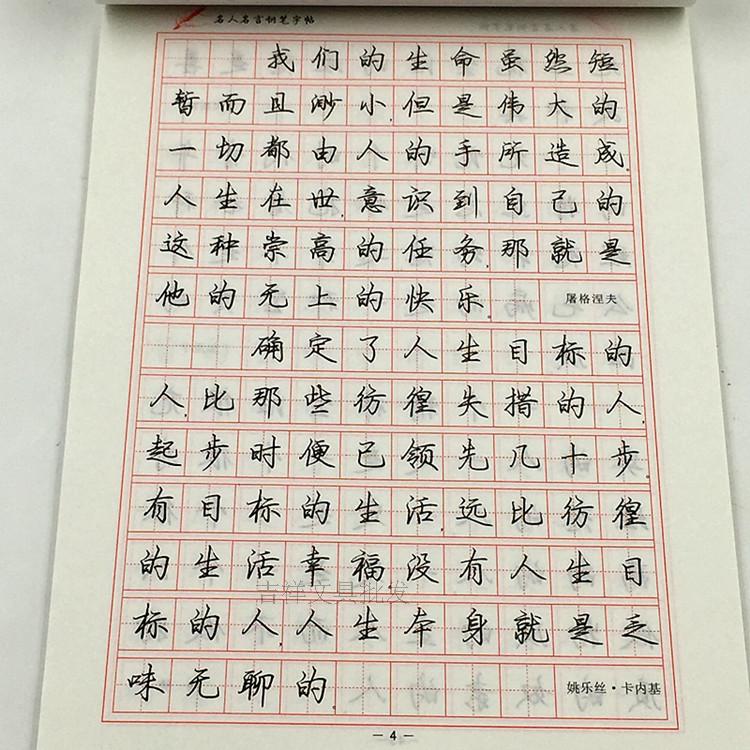 名人名言钢笔字帖
我们的生命虽然短
暂而且渺小.但是伟大的
一切都由人的手所造成.
人生在世.意识到自己的
这种崇高的任务.那就是
他的无上的快乐. 屠格涅夫
确定了人生目标的
人.比那些彷徨失措的人.
起步时便已领先几十步.
有目标的生活.远比彷徨
的生活幸福.没有人生目
标的人.人生本身就是乏
味无聊的. 姚乐丝·卡内基
吉祥文具批发
— 4 —